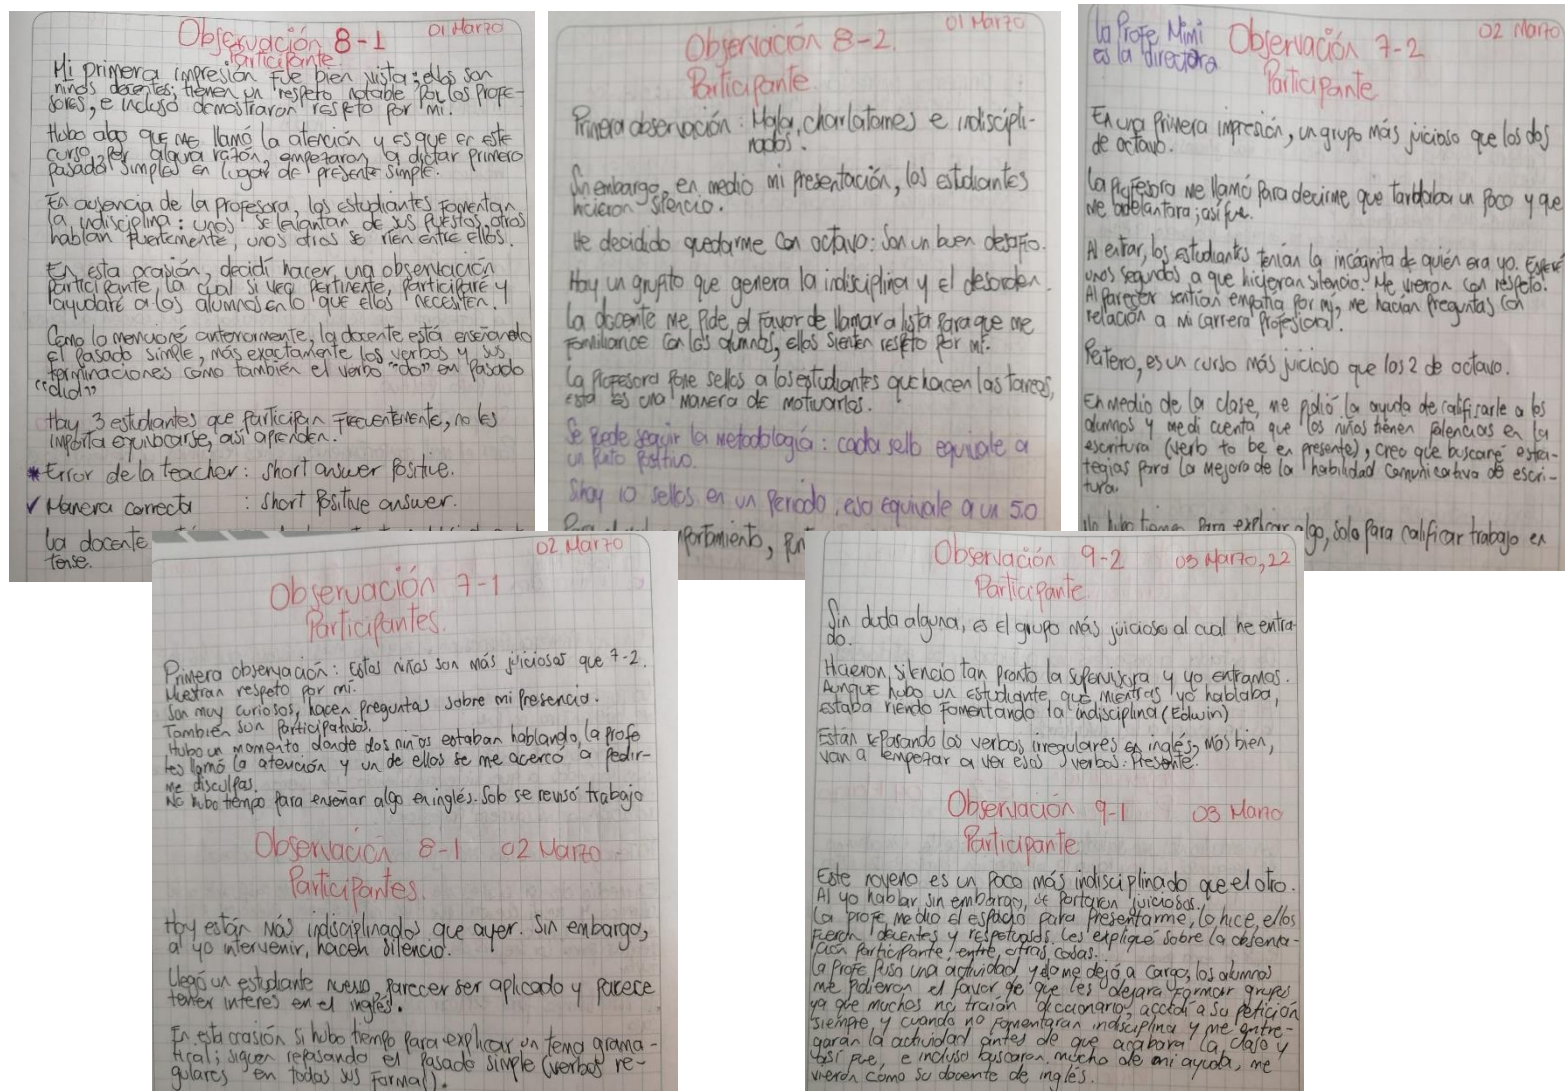 Observación 8-1
01 Marzo
Participante
Mi primera impresión fue bien vista; ellos son
niños decentes; tienen un respeto notable por los profe-
sores, e incluso demostraron respeto por mi.
Hubo algo que me llamó la atención y es que en este
curso, por alguna razón, empezaron a dictar primero
pasado simple en lugar de presente simple.
En ausencia de la profesora, los estudiantes fomentan
la indisciplina: unos se levantan de sus puestos, otros
hablan fuertemente, unos otros se rien entre ellos.
En esta ocasión, decidí hacer una observación
participante, la cual si veo pertinente, participaré y
ayudaré a los alumnos en lo que ellos necesiten.
Como lo mencioné anteriormente, la docente está enseñando
el pasado simple, más exactamente los verbos y sus
terminaciones como también el verbo "do" en pasado
"did"
Hay 3 estudiantes que participan frecuentemente, no les
importa equivocarse, así aprenden.
* Error de la teacher: short answer positive.
✓ Manera correcta : short positive answer.
La docente
tense.
Observación 8-2
01 Marzo
Participante
Primera observación: Malos, charlatanes e indiscipli-
nados.
Sin embargo, en medio mi presentación, los estudiantes
hicieron silencio.
He decidido quedarme con octavo: Son un buen desafío.
Hay un grupito que genera la indisciplina y el desorden.
La docente me pide el favor de llamar a lista para que me
familiarice con los alumnos, ellos sienten respeto por mí.
La profesora pone sellos a los estudiantes que hacen las tareas,
esta es una manera de motivarlos.
Se puede seguir la metodología: cada sello equivale a
un punto positivo.
Si hay 10 sellos en un periodo, eso equivale a un 50
la Profe Mimi
es la directora
Observación 7-2
02 Marzo
Participante
En una primera impresión, un grupo más juicioso que los dos
de octavo.
La profesora me llamó para decirme que tardaba un poco y que
me adelantara; así fue.
Al entrar, los estudiantes tenían la incógnita de quién era yo. Esperé
unos segundos a que hicieran silencio. Me vieron con respeto.
Al parecer sentían empatía por mí, me hacían preguntas con
relación a mi carrera profesional.
Reitero, es un curso más juicioso que los 2 de octavo.
En medio de la clase, me pidió la ayuda de calificarle a los
alumnos y me di cuenta que los niños tienen falencias en la
escritura (verb to be en presente), creo que buscaré estra-
tegias para la mejora de la habilidad comunicativa de escri-
tura.
No hubo tiempo para explicar algo, solo para calificar trabajo en
02 Marzo
Observación 7-1
Participantes.
Primera observación: Estos niños son más juiciosos que 7-2.
Muestran respeto por mí.
Son muy curiosos, hacen preguntas sobre mi presencia.
También son participativos.
Hubo un momento donde dos niños estaban hablando, la profe
les llamó la atención y un de ellos se me acercó a pedir-
me disculpas.
No hubo tiempo para enseñar algo en inglés. Solo se revisó trabajo
Observación 8-1 02 Marzo
Participantes.
Hoy están más indisciplinados que ayer. Sin embargo,
al yo intervenir, hacen silencio.
Llegó un estudiante nuevo, parecer ser aplicado y parece
tener interes en el inglés.
En esta ocasión si hubo tiempo para explicar un tema grama-
tical; siguen repasando el pasado simple (verbos re-
gulares en todas sus formas).
Observación 9-2 03 Marzo, 22
Participante
Sin duda alguna, es el grupo más juicioso al cual he entra-
do.
Hicieron silencio tan pronto la supervisora y yo entramos.
Aunque hubo un estudiante, que mientras yo hablaba,
estaba riendo fomentando la indisciplina (Edwin)
Están repasando los verbos irregulares en inglés, más bien,
van a empezar a ver esos verbos: Presente.
Observación 9-1 03 Marzo
Participante
Este noveno es un poco más indisciplinado que el otro.
Al yo hablar sin embargo, se portaron juiciosos.
La profe, me dio el espacio para presentarme, lo hice, ellos
fueron decentes y respetuosos. Les expliqué sobre la observa-
ción participante, entre otras cosas.
La profe puso una actividad y me dejó a cargo, los alumnos
me pidieron el favor de que les dejara formar grupos
ya que muchos no traían diccionario, accedí a su petición
siempre y cuando no fomentaran indisciplina y me entre-
garan la actividad antes de que acabara la clase y
así fue, e incluso buscaron mucho de mi ayuda, me
vieron cómo su docente de inglés.